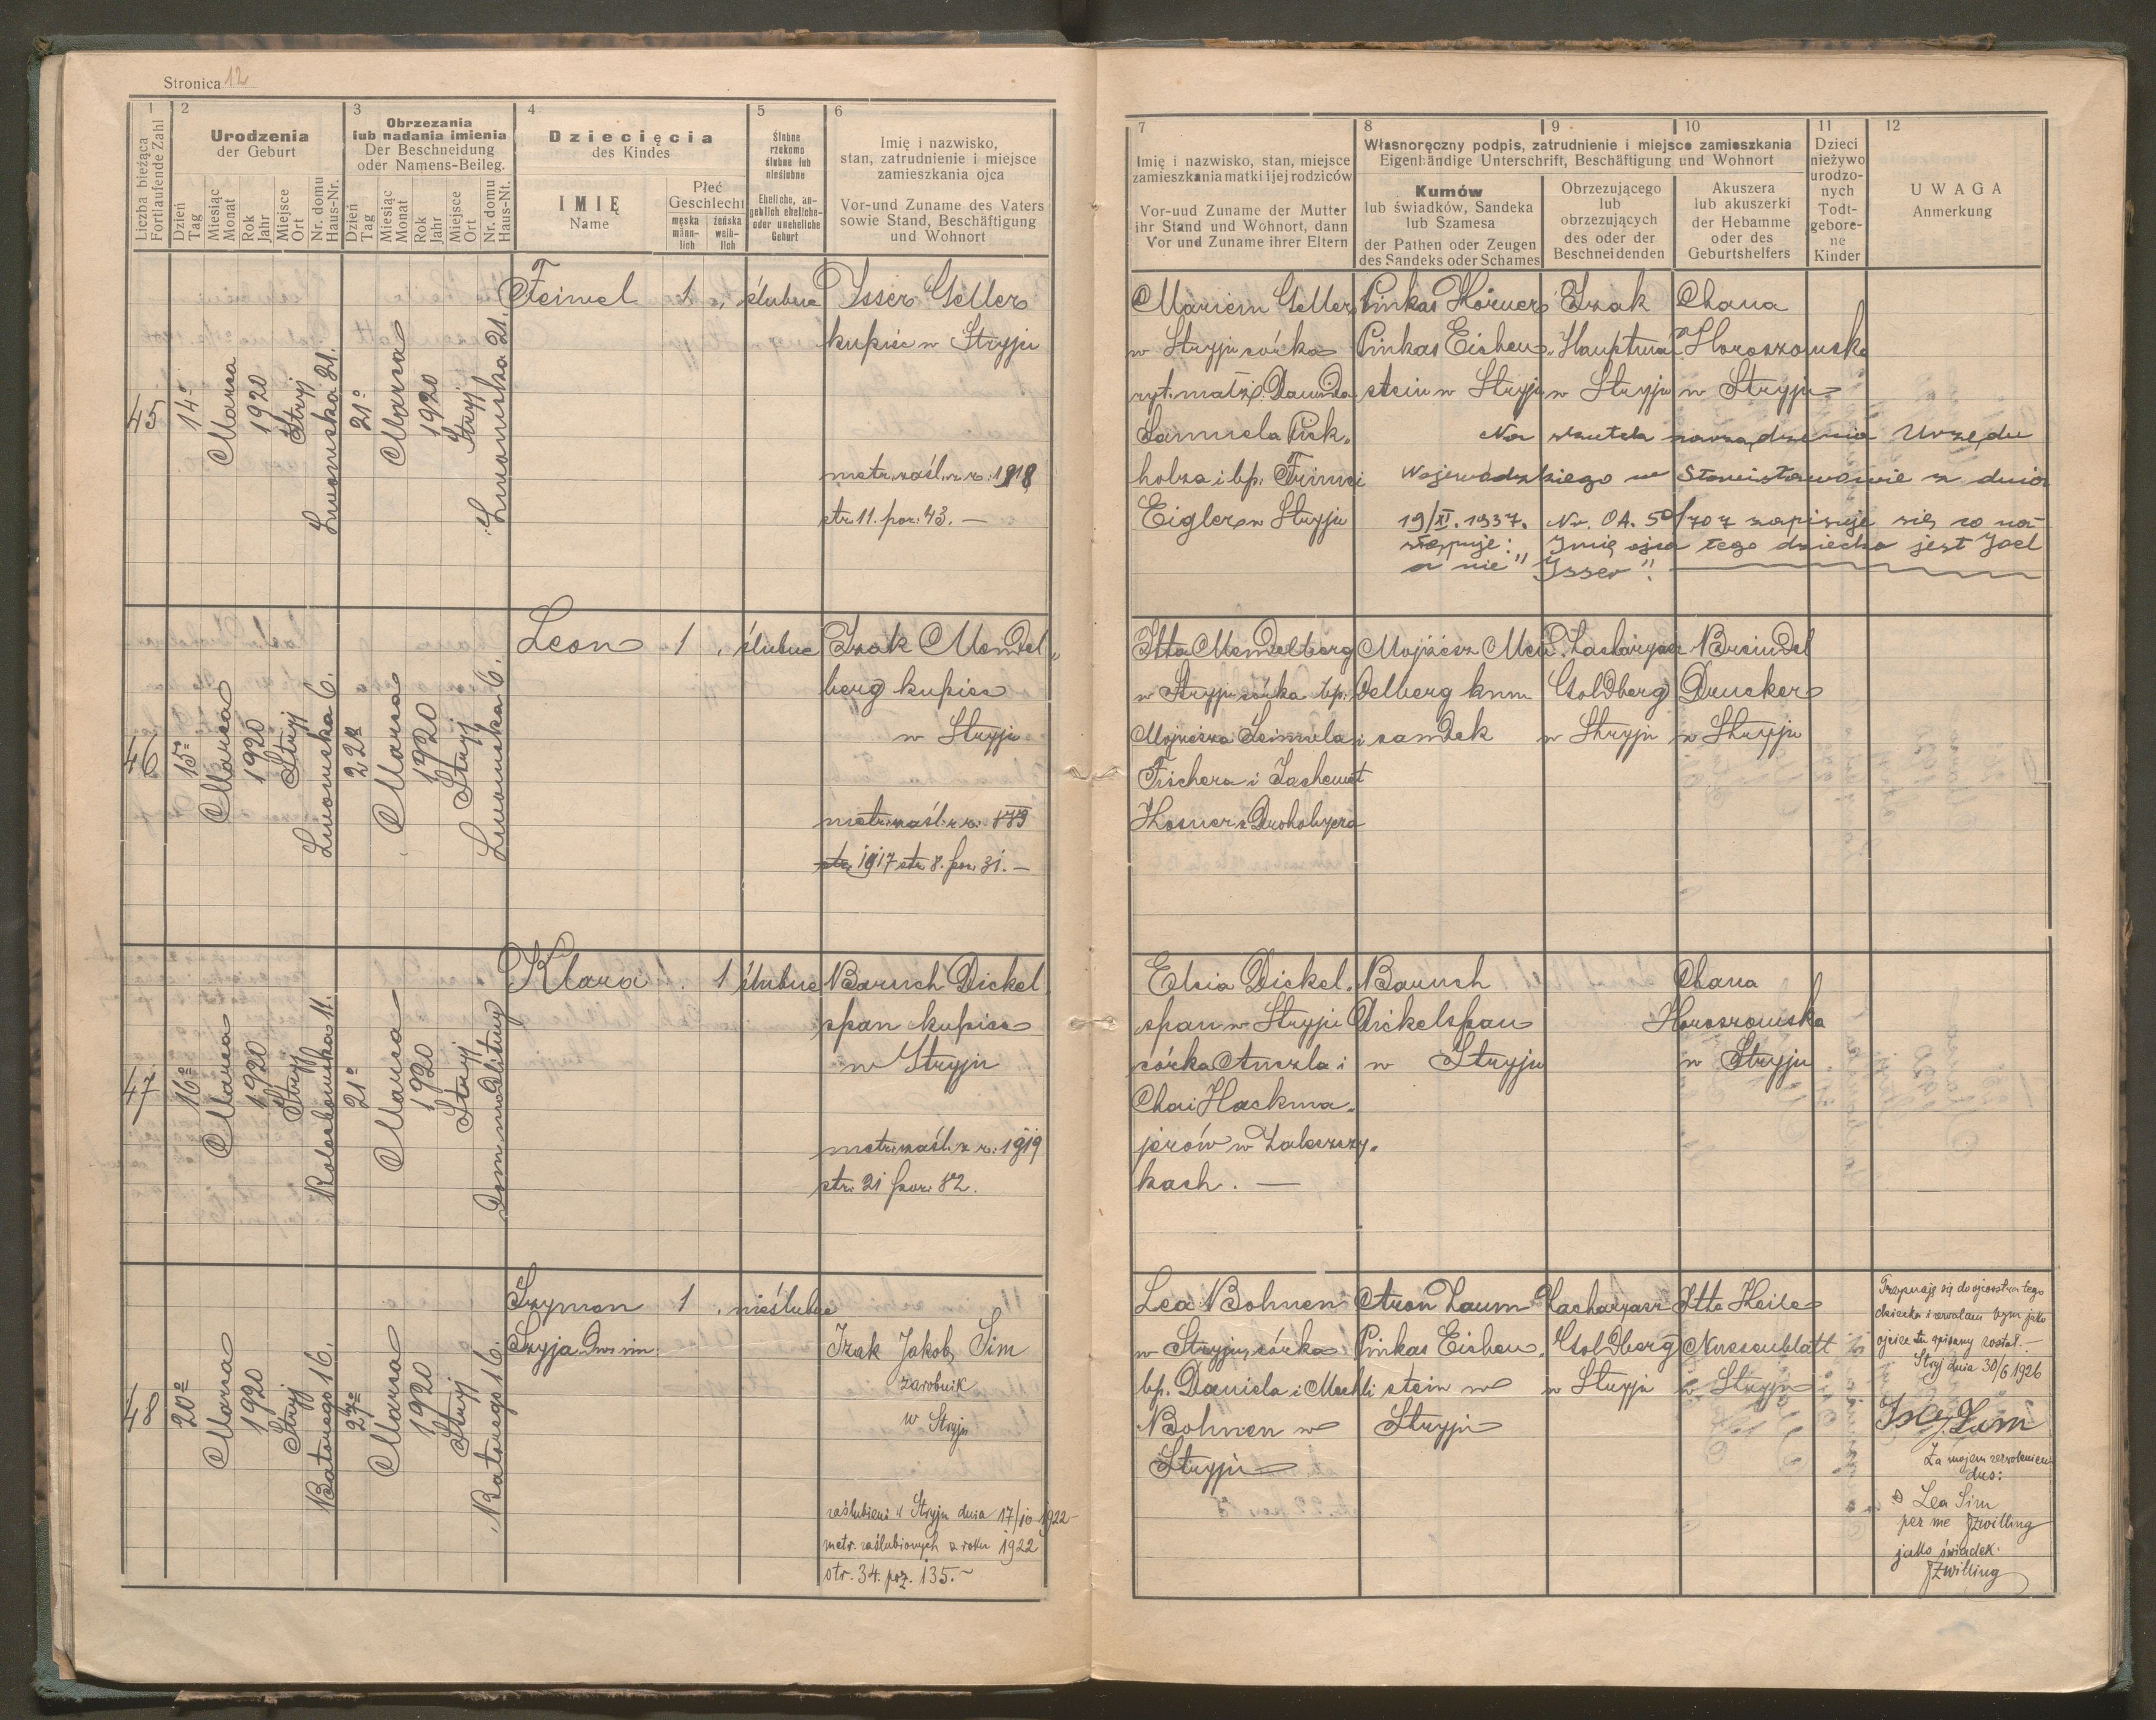 Stronica 12
1
Liczba bieżąca
Fortlaufende Zahl
2
Urodzenia
der Geburt
Dzień
Tag
Miesiąc
Monat
Rok
Jahr
Miejsce
Ort
Nr. domu
Haus-Nr.
3
Obrzezania
lub nadania imienia
Der Beschneidung
oder Namens-Beileg.
Dzień
Tag
Miesiąc
Monat
Rok
Jahr
Miejsce
Ort
Nr. domu
Haus-Nt.
4
Dziecięcia
des Kindes
IMIĘ
Name
Płeć
Geschlecht
męska
männ-
lich
żeńska
weib-
lich
5
Ślubne
rzekomo
ślubne lub
nieślubne
Eheliche, an-
geblich eheliche-
oder uneheliche
Geburt
6
Imię i nazwisko,
stan, zatrudnienie i miejsce
zamieszkania ojca
Vor-und Zuname des Vaters
sowie Stand, Beschäftigung
und Wohnort
7
Imię i nazwisko, stan, miejsce
zamieszkania matki i jej rodziców
Vor-uud Zuname der Mutter
ihr Stand und Wohnort, dann
Vor und Zuname ihrer Eltern
8 9 10
Własnoręczny podpis, zatrudnienie i miejsce zamieszkania
Eigenhändige Unterschrift, Beschäftigung und Wohnort
Kumów
lub świadków, Sandeka
lub Szamesa
der Pathen oder Zeugen
des Sandeks oder Schames
Obrzezującego
lub
obrzezujących
des oder der
Beschneidenden
Akuszera
lub akuszerki
der Hebamme
oder des
Geburtshelfers
11
Dzieci
nieżywo
urodzo-
nych
Todt-
gebore-
ne
Kinder
12
UWAGA
Anmerkung
45
14o
Marca
1920
Stryj
Lwowska 21.
21o
Marca
1920
Stryj
Lwowska 21.
Feiwel 1 ślubne
Isser Geller
kupiec w Stryju
metr. zaśl. z r. 1918
str. 11. poz. 43. —
Mariem Geller
w Stryju córka
ryt. małż. Dawida
Samuela Pick„
holza i bp. Frimci
Eigler w Stryju
Pinkas Hörner
Pinkas Eichen„
stein w Stryju
Izak
Hauptman
w Stryju
Chana
Horoszowska
w Stryju
Na skutek zarządzenia Urzędu
Wojewódzkiego w Stanisławowie z dnia
19/XI. 1937. Nr. OA. 50/707 zapisuje się co na-
stępuje: „Imię ojca tego dziecka jest Joel
a nie "Isser".
46
15o
Marca
1920
Stryj
Lwowska 6.
22o
Marca
1920
Stryj
Lwowska 6.
Leon 1 ślubne
Izak Mendel„
berg kupiec
w Stryju
metr. zaśl. z r.
str. 1917 str. 8. poz. 31. —
Itta Mendelberg
w Stryju córka bp.
Mojżesza Leimzela i
Fischera i Lachemet
Kosner z Drohobycza
Mojżesz Men„
delberg kum
sandek
Zacharyasz
Goldberg
w Stryju
Breindel
Drucker
w Stryju
47
16o
Marca
1920
Stryj
Kolochowska 11.
21o
Marca
1920
Stryj
Dom modlitwy
Klara 1 ślubne
Baruch Dickel„
span kupiec
w Stryju
metr. zaśl. z r. 1919
str. 21 poz. 82.
Elcia Dickel„
span w Stryju
córka Anszla i
Chai Hackma„
jerów w Zaleszczy„
kach. —
Baruch
Dickelspan
w Stryju
Chana
Horoszowska
w Stryju
48
20o
Marca
1920
Stryj
Batorego 16.
27o
Marca
1920
Stryj
Batorego 16.
Szymon 1 nieślubne
Szyja Dwuim.
Izak Jakob Sim
zarobnik
w Stryju
zaślubieni w Stryju dnia 17/10 1922 -
metr. zaślubionych z roku 1922
str. 34. poz. 135. -
Lea Bohnen
w Stryju, córka
bp. Daniela i Mechli
Bohnen w
Stryju
Aron Laum
Pinkas Eichen„
stein w
Stryju
Zacharyasz
Goldberg
w Stryju
Itte Heile
Nussenblatt
w Stryju
Przyznaję się do ojcostwa tego
dziecka i zezwalam bym jako
ojciec tu wpisany został. —
Stryj dnia 30/6 1926
Sim
Za mojem zezwoleniem
dus:
Lea Sim
per me JZwilling
jako świadek.
JZwilling